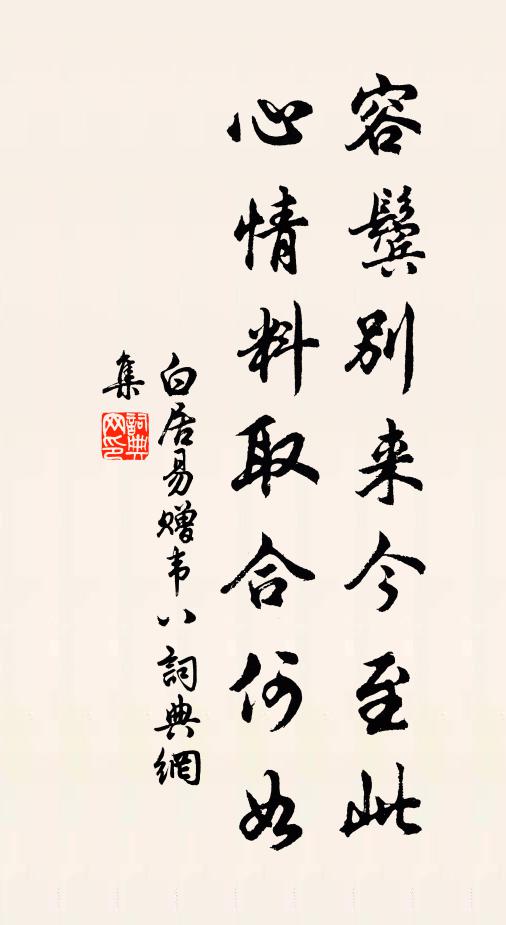 容鬢別来今至此
心情料取合何如
白居易赠韦八詞典網
集
詞典网印